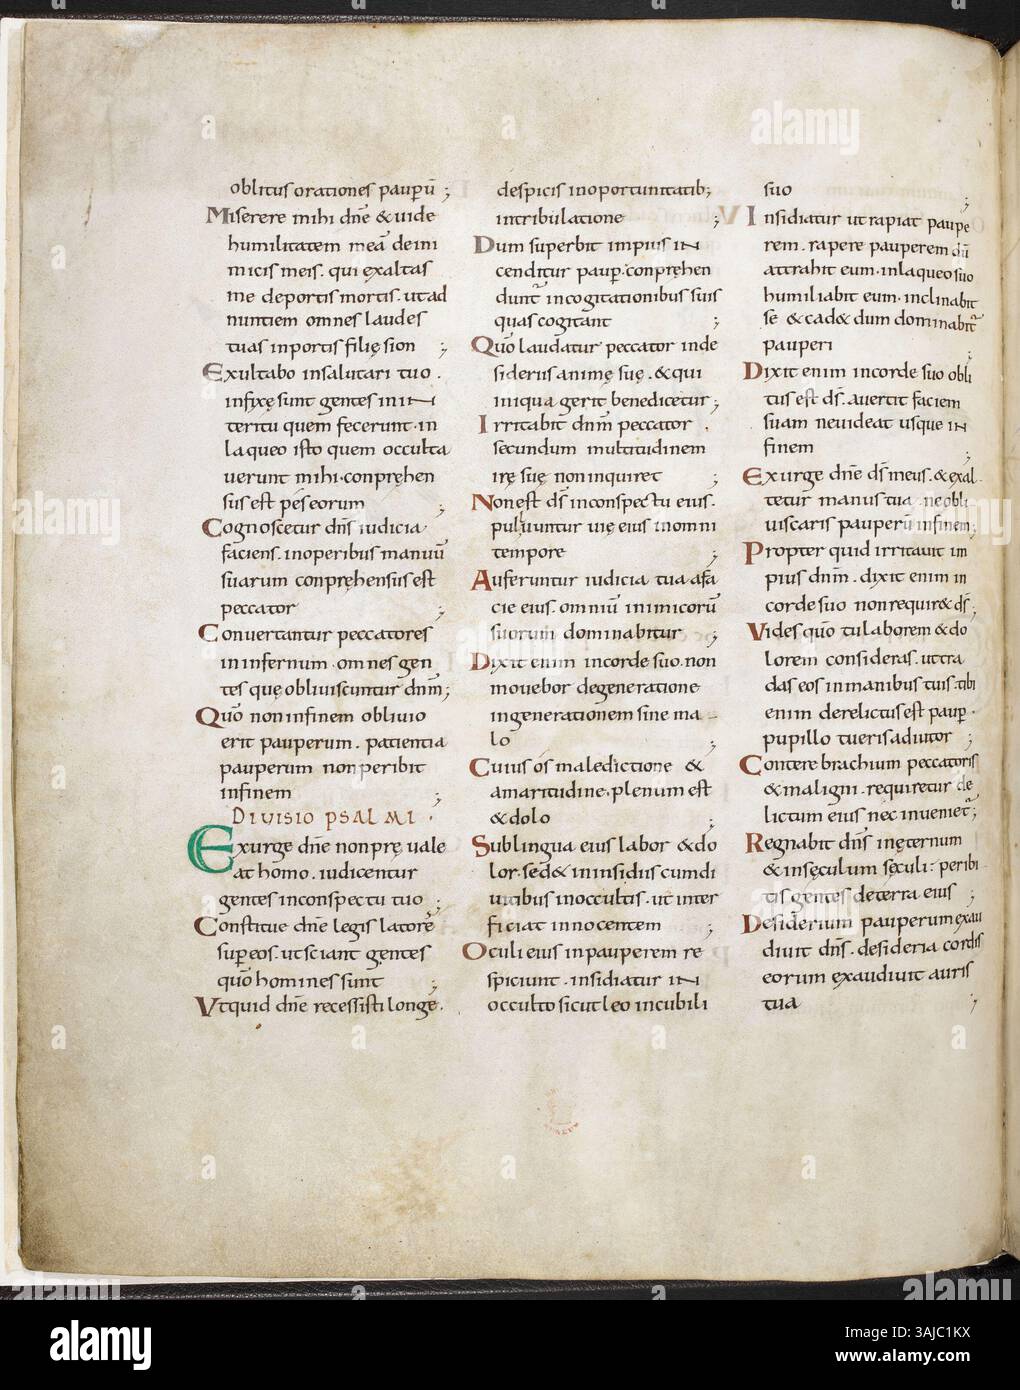 oblitus orationes pauperū ;
Miserere mihi dn̄e & uide
humilitatem meā de ini
micis meis . qui exaltas
me de portis mortis . ut ad
nuntiem omnes laudes
tuas in portis filię sion ;
Exultabo in salutari tuo .
infixę sunt gentes in in
teritu quem fecerunt . in
laqueo isto quem occulta
uerunt mihi . conpręhen
sus est pes eorum ;
Cognoscetur dn̄s iudicia
faciens . in operibus manuū
suarum conpręhensus est
peccator ;
Conuertantur peccatores
in infernum . omnes gen
tes quę obliuiscuntur dn̄m ;
Quō non in finem obliuio
erit pauperum . patientia
pauperum non peribit
in finem ;
DIUISIO PSALMI .
Exurge dn̄e non prę uale
at homo . iudicentur
gentes in conspectu tuo ;
Constitue dn̄e legis latorē
super eos . ut sciant gentes
quō homines sunt ;
Vt quid dn̄e recessisti longe .
despicis in oportunitatib;
in tribulatione ;
Dum superbit impius in
cenditur paup . conpręhen
dunt̄ in cogitationibus suis
quas cogitant ;
Quō laudatur peccator in de
sideriis animę suę . & qui
iniqua gerit benedicetur ;
Irritabit dn̄m peccator .
secundum multitudinem
irę suę non inquiret ;
Non est d̄s in conspectu eius .
polluuntur uię eius in omni
tempore ;
Auferuntur iudicia tua a fa
cie eius . omniū inimicorū
suorum dominabitur ;
Dixit enim in corde suo . non
mouebor de generatione
in generationem sine ma
lo ;
Cuius ōs maledictione &
amaritudine . plenum est
& dolo ;
Sub lingua eius labor & do
lor . sed& in insidiis cum di
uitibus in occultis . ut inter
ficiat innocentem ;
Oculi eius in pauperem re
spiciunt . insidiatur in
occulto sicut leo in cubili
suo ;
Insidiatur ut rapiat paupe
rem . rapere pauperem dū
attrahit eum . in laqueo suo
humiliabit eum . inclinabit
se & cad& dum dominabit̄
pauperi ;
Dixit enim in corde suo obli
tus est d̄s . auertit faciem
suam ne uideat usque in
finem ;
Exurge dn̄e d̄s meus . & exal
tetur manus tua . ne obli
uiscaris pauperū in finem ;
Propter quid irritauit im
pius dn̄m . dixit enim in
corde suo non requir& d̄s ;
Vides quō tu laborem & do
lorem consideras . ut tra
das eos in manibus tuis . tibi
enim derelictus est paup .
pupillo tu eris adiutor ;
Contere brachium peccatoris
& maligni . requiretur de
lictum eius nec inueniet̄ ;
Regnabit dn̄s in ęternum
& in sęculum sęculi : peribi
tis gentes de terra eius ;
Desiderium pauperum exau
diuit dn̄s . desideria cordis
eorum exaudiuit auris
tua ;
alamy
www.alamy.com
3AJC1KX